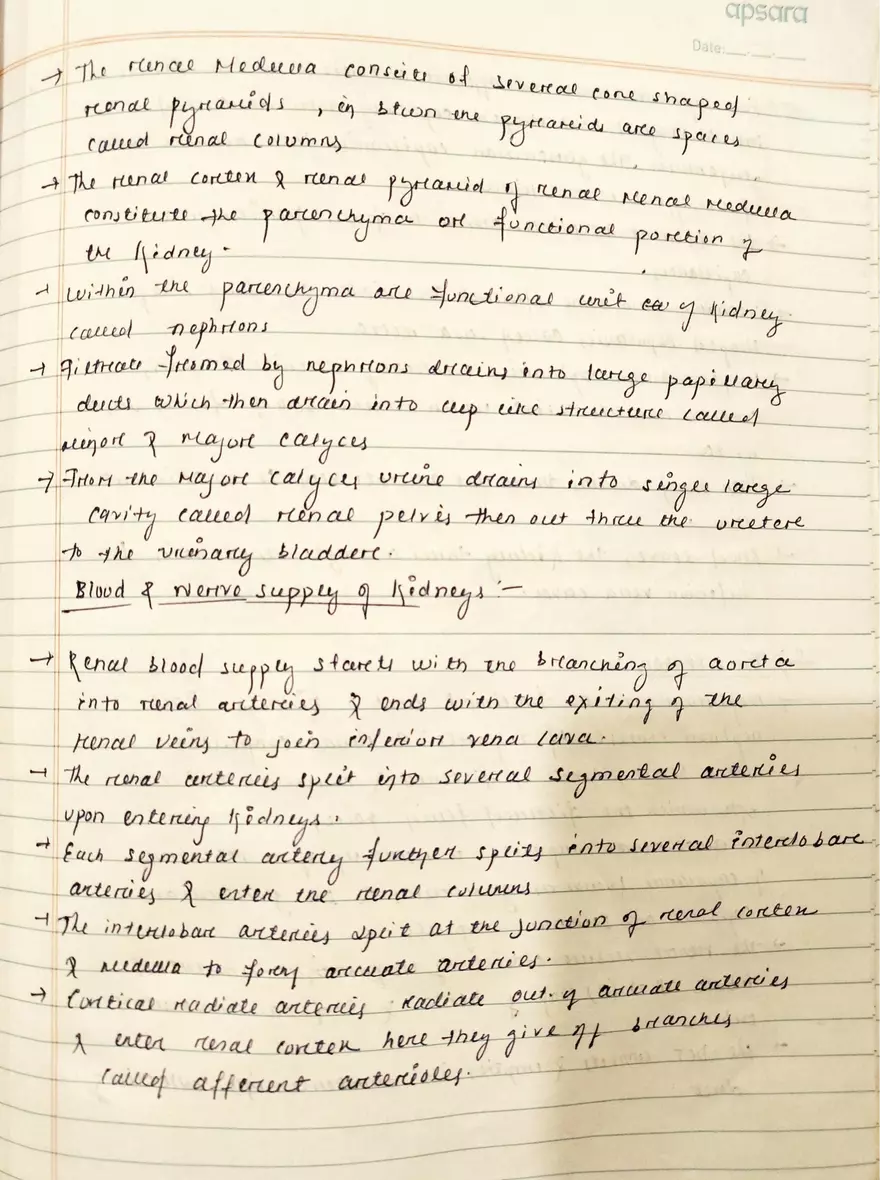 apsara
Date:__.__.__
→ The renal Medulla consists of several cone shaped
renal pyramids, in btwn the pyramids are spaces
called renal columns
→ The renal cortex & renal pyramid of renal renal Medulla
constitute the parenchyma or functional portion of
the Kidney.
→ Within the parenchyma are functional unit of Kidney
called nephrons
→ Filtrate formed by nephrons drains into large papillary
ducts which then drain into cup like structure called
minor & Major calyces
→ From the Major calyces urine drains into single large
cavity called renal pelvis then out through the ureter
to the urinary bladder.
Blood & Nerve supply of Kidneys :-
→ Renal blood supply starts with the branching of aorta
into renal arteries & ends with the exiting of the
renal veins to join inferior vena cava.
→ The renal arteries split into several segmental arteries
upon entering Kidneys.
→ Each segmental artery further splits into several interlobar
arteries & enter the renal columns
→ The interlobar arteries split at the junction of renal cortex
& Medulla to form arcuate arteries.
→ Cortical radiate arteries radiate out of arcuate arteries
& enter renal cortex here they give off branches
called afferent arterioles.